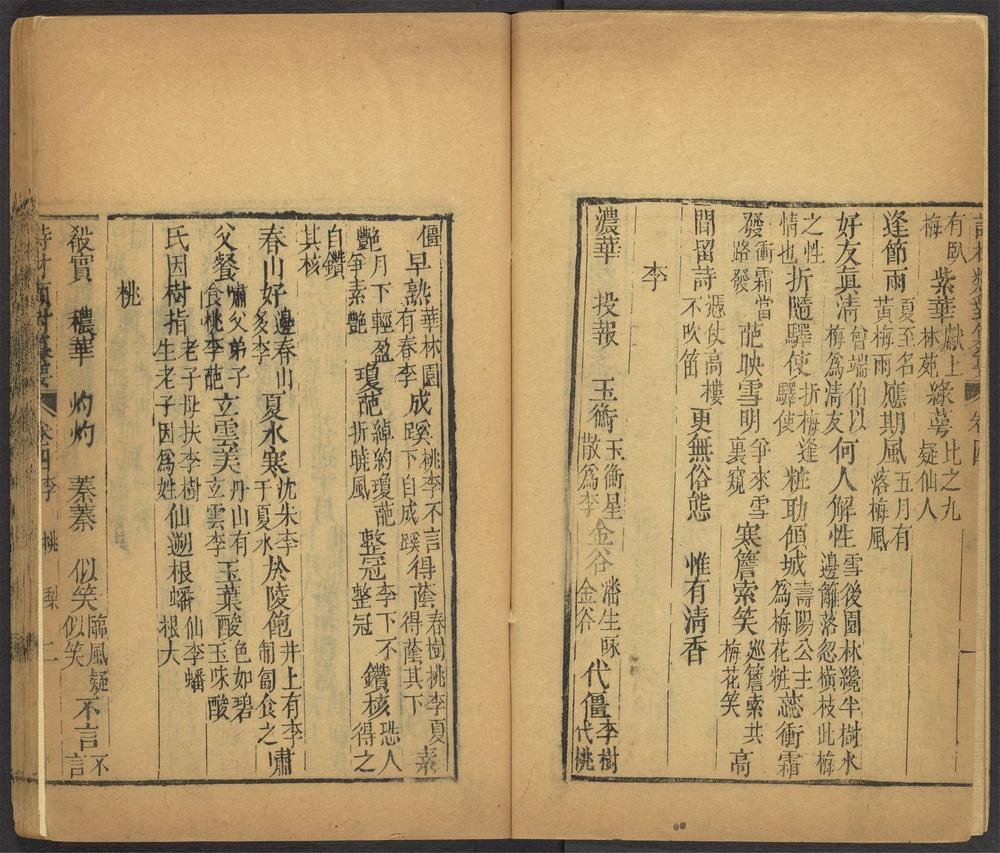 有臥梅 紫華 獻上林苑 綠萼 比之九疑仙人
逢節雨 夏至名黃梅雨 應期風 五月有落梅風
好友真清 曾端伯以梅為清友 何人解性 雪後園林纔半樹水邊籬落忽橫枝此梅
之性情也 折隨驛使 折梅逢驛使 粧助傾城 壽陽公主為梅花粧 蕊衝霜
發 衝霜當路發 葩映雪明 爭來雪裏窺 寒簷索笑 巡簷索共梅花笑 高
閒留詩 憑仗高樓不吹笛 更無俗態 惟有清香
李
濃華 投報 玉衡 玉衡星散為李 金谷 潘生金谷 代僵 李樹代桃
僵 早熟 華林園有春李 成蹊 桃李不言下自成蹊 得蔭 春樹桃李夏得蔭其下 素
艷 月下輕盈爭素艷 瓊葩 綽約瓊葩折曉風 整冠 李下不整冠 鑽核 恐人得之
自鑽其核
春山好 邊春山多李 夏水寒 沈朱李于夏水 於陵飽 井上有李匍匐食之 嘯
父餐 嘯父弟子食桃李葩 玄雲美 丹山有玄雲李 玉葉酸 色如碧玉味酸
氏因樹指 老子母扶李樹生老子因為姓 仙遡根蟠 仙李蟠根大
桃
殺實 穠華 灼灼 蓁蓁 似笑 臨風疑似笑 不言 不言
卷四 李 桃 梨 二